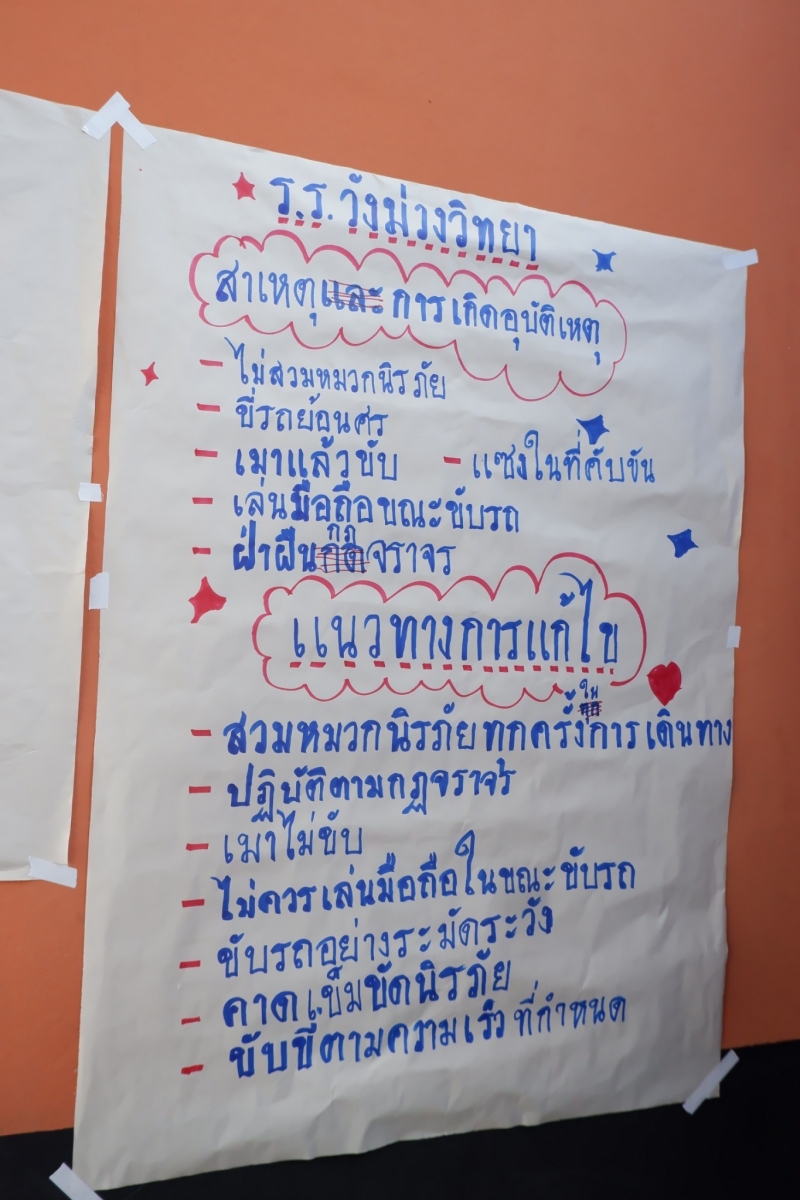 ร.ร.วังม่วงวิทยา
สาเหตุและการเกิดอุบัติเหตุ
- ไม่สวมหมวกนิรภัย
- ขี่รถย้อนศร
- เมาแล้วขับ - แซงในที่คับขัน
- เล่นมือถือขณะขับรถ
- ฝ่าฝืนกฎจราจร
แนวทางการแก้ไข
- สวมหมวกนิรภัยทุกครั้งในการเดินทาง
- ปฏิบัติตามกฎจราจร
- เมาไม่ขับ
- ไม่ควรเล่นมือถือในขณะขับรถ
- ขับรถอย่างระมัดระวัง
- คาดเข็มขัดนิรภัย
- ขับขี่ตามความเร็วที่กำหนด